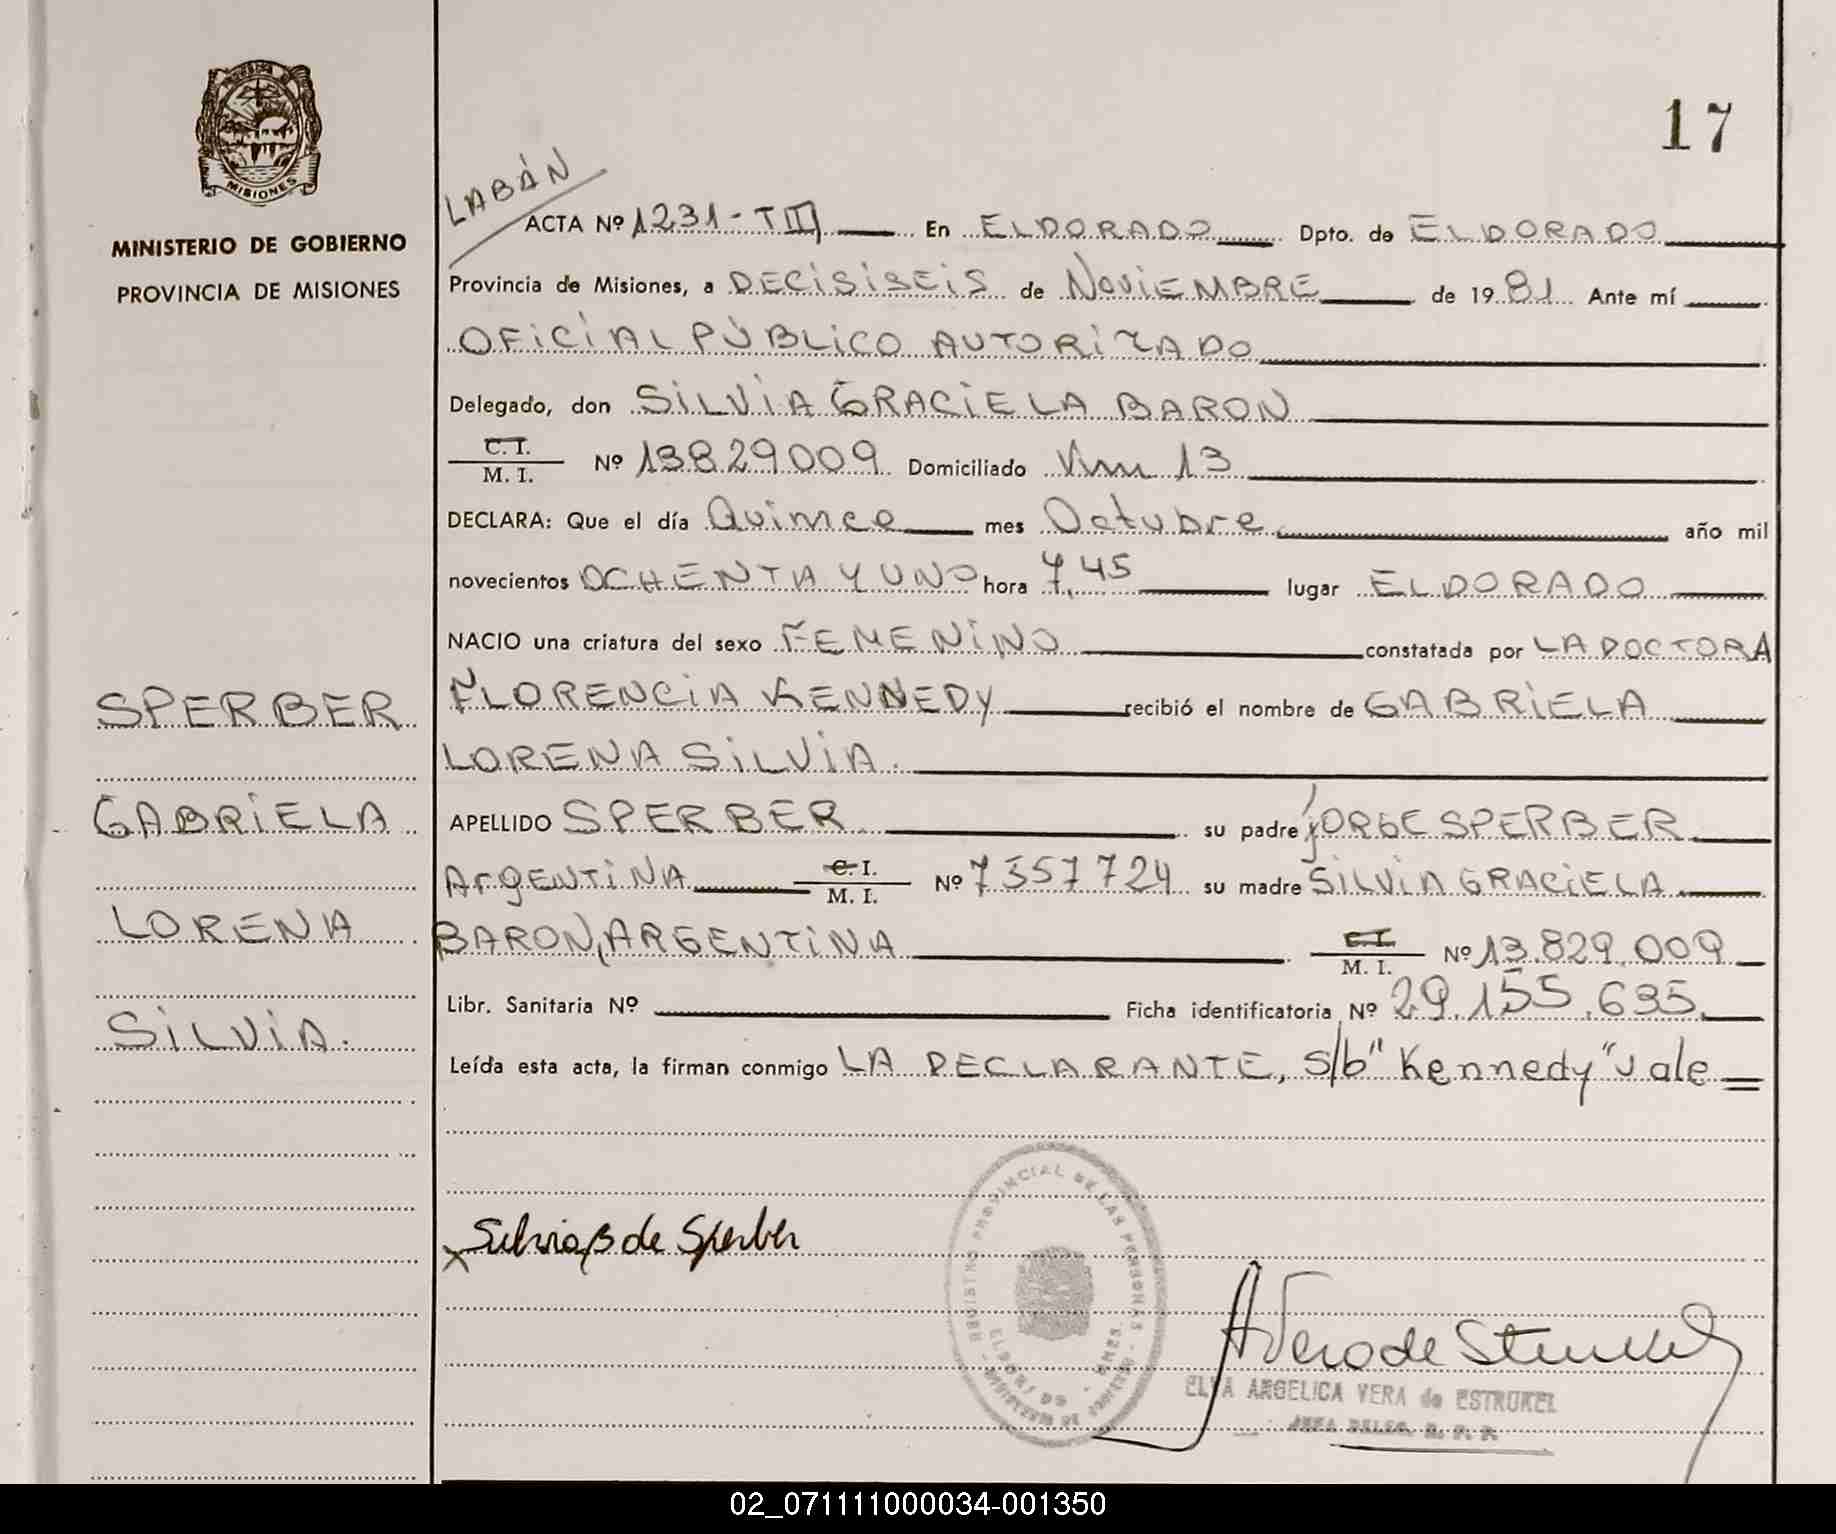 17
MISIONES
MINISTERIO DE GOBIERNO
PROVINCIA DE MISIONES
SPERBER
GABRIELA
LORENA
SILVIA.
LABÁN
ACTA Nº 1231-TIII En ELDORADO Dpto. de ELDORADO
Provincia de Misiones, a DECISISEIS de NOVIEMBRE de 1981 Ante mí
OFICIAL PÚBLICO AUTORIZADO
Delegado, don SILVIA GRACIELA BARON
C. I.
M. I. Nº 13829009 Domiciliado Km 13
DECLARA: Que el día Quince mes Octubre año mil
novecientos OCHENTA Y UNO hora 7,45 lugar ELDORADO
NACIO una criatura del sexo FEMENINO constatada por LA DOCTORA
FLORENCIA KENNEDY recibió el nombre de GABRIELA
LORENA SILVIA.
APELLIDO SPERBER su padre JORGE SPERBER
ARGENTINA C. I.
M. I. Nº 7357724 su madre SILVIA GRACIELA
BARON, ARGENTINA C. I.
M. I. Nº 13.829.009
Libr. Sanitaria Nº Ficha identificatoria Nº 29.155.635.
Leída esta acta, la firman conmigo LA DECLARANTE, s/b "Kennedy" vale
Silvia B de Sperber
REGISTRO PROVINCIAL DE LAS PERSONAS
ELDORADO
A Vera de
ELVA ANGELICA VERA de ESTRUKEL
JEFA DELEG. R. P. P.
02_071111000034-001350